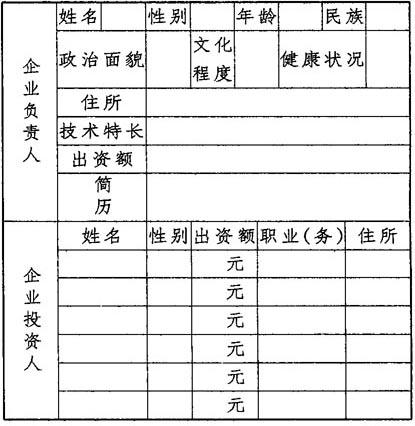 企业负责人
姓名 性别 年龄 民族
政治面貌 文化程度 健康状况
住所
技术特长
出资额
简历
企业投资人
姓名 性别 出资额 职业(务) 住所
元
元
元
元
元
元